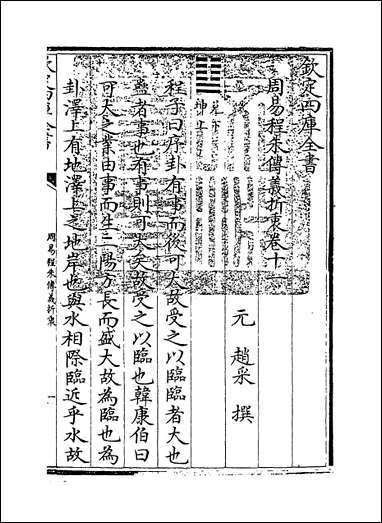 欽定四庫全書
周易程朱傳義折衷卷十一
元 趙采 撰
兌下
坤上
程子曰序卦有事而後可大故受之以臨臨者大也
蠱者事也有事則可大矣故受之以臨也韓康伯曰
可大之業由事而生二陽方長而盛大故為臨也為
卦澤上有地澤上之地岸也與水相際臨近乎水故
欽定四庫全書
周易程朱傳義折衷
一